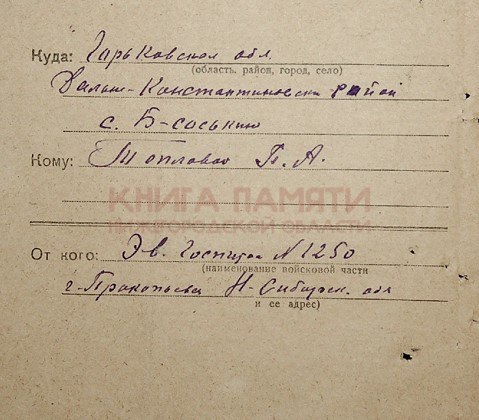 Куда: Горьковская обл.
(область, район, город, село)
Дальне-Константиновский район
с. Б-Соськино
Кому: Топловой П. А.
КНИГА ПАМЯТИ
НИЖЕГОРОДСКОЙ ОБЛАСТИ
От кого: Эв. Госпиталь N 1250
(наименование войсковой части
г. Прокопьевск Н-Сибирск. обл
и ее адрес)